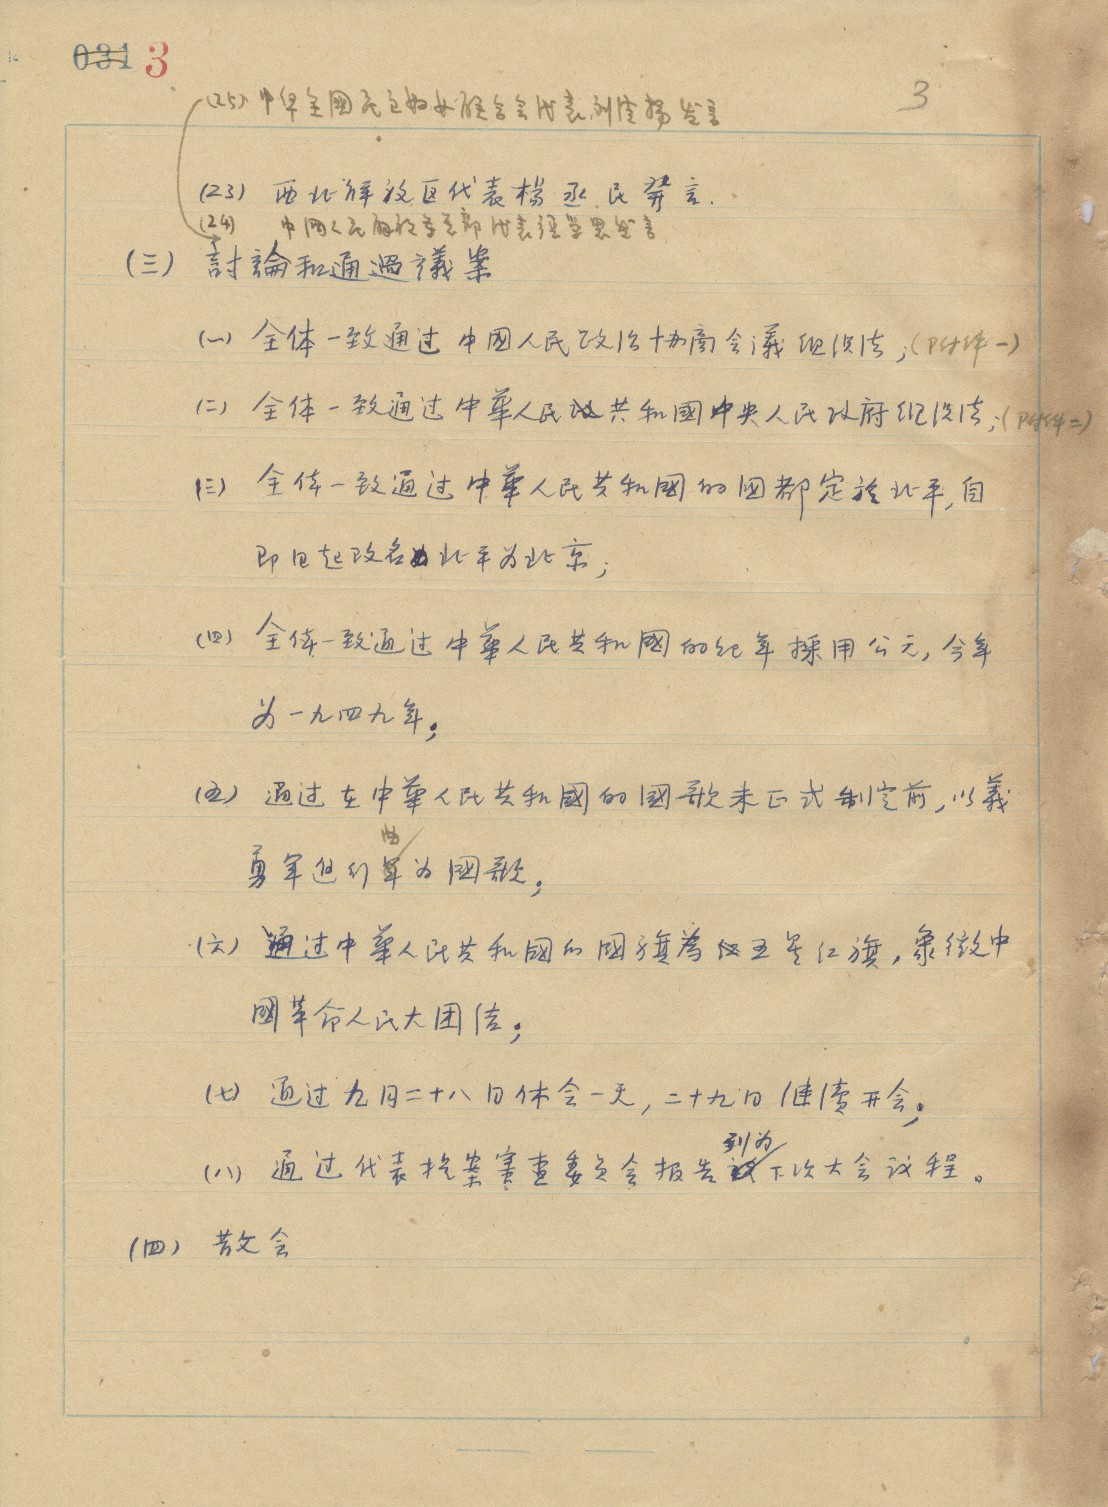 031 3
3
(25) 中华全國民主妇女联合会代表刘清揚发言
(23) 西北解放区代表楊丞民發言.
(24) 中國人民解放军总部代表张学思发言
(三) 討論和通過議案
(一) 全体一致通过中國人民政治协商会議组织法;(附件一)
(二) 全体一致通过中華人民共和國中央人民政府组织法;(附件二)
(三) 全体一致通过中華人民共和國的國都定於北平,自
即日起改名北平为北京;
(四) 全体一致通过中華人民共和國的纪年採用公元,今年
为一九四九年;
(五) 通过在中華人民共和國的國歌未正式制定前,以義
勇军进行曲为國歌;
(六) 通过中華人民共和國的國旗為五星红旗,象徵中
國革命人民大团结;
(七) 通过九月二十八日休会一天,二十九日继續开会;
(八) 通过代表提案審查委员会报告列为下次大会议程。
(四) 散会